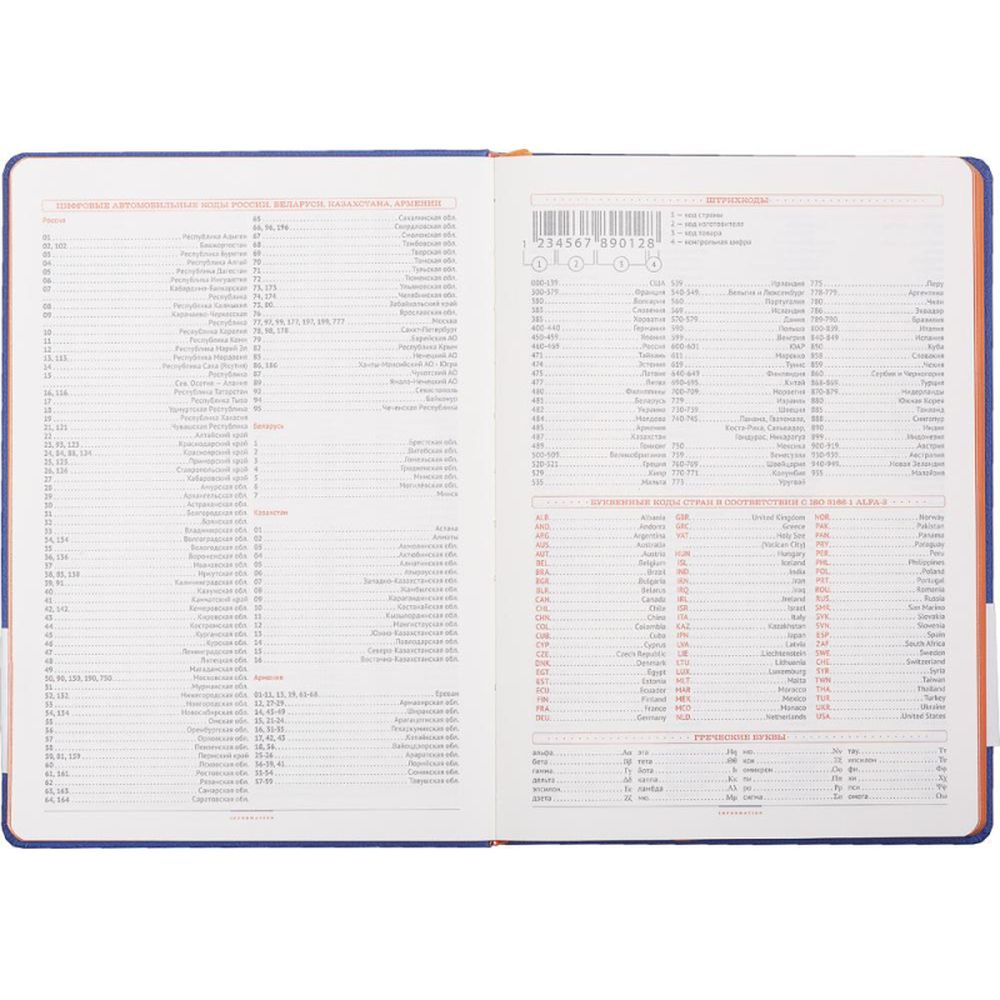 ЦИФРОВЫЕ АВТОМОБИЛЬНЫЕ КОДЫ РОССИИ, БЕЛАРУСИ, КАЗАХСТАНА, АРМЕНИИ
Россия
01 Республика Адыгея
02, 102 Башкортостан
03 Республика Бурятия
04 Республика Алтай
05 Республика Дагестан
06 Республика Ингушетия
07 Кабардино-Балкарская
Республика
08 Республика Калмыкия
09 Карачаево-Черкесская
Республика
10 Республика Карелия
11 Республика Коми
12 Республика Марий Эл
13, 113 Республика Мордовия
14 Республика Саха (Якутия)
15 Республика
Сев. Осетия — Алания
16, 116 Республика Татарстан
17 Республика Тыва
18 Удмуртская Республика
19 Республика Хакасия
21, 121 Чувашская Республика
22 Алтайский край
23, 93, 123 Краснодарский край
24, 84, 88, 124 Красноярский край
25, 125 Приморский край
26, 126 Ставропольский край
27 Хабаровский край
28 Амурская обл.
29 Архангельская обл.
30 Астраханская обл.
31 Белгородская обл.
32 Брянская обл.
33 Владимирская обл.
34, 134 Волгоградская обл.
35 Вологодская обл.
36, 136 Воронежская обл.
37 Ивановская обл.
38, 85, 138 Иркутская обл.
39, 91 Калининградская обл.
40 Калужская обл.
41 Камчатский край
42, 142 Кемеровская обл.
43 Кировская обл.
44 Костромская обл.
45 Курганская обл.
46 Курская обл.
47 Ленинградская обл.
48 Липецкая обл.
49 Магаданская обл.
50, 90, 150, 190, 750 Московская обл.
51 Мурманская обл.
52, 152 Нижегородская обл.
53 Новгородская обл.
54, 154 Новосибирская обл.
55 Омская обл.
56 Оренбургская обл.
57 Орловская обл.
58 Пензенская обл.
59, 81, 159 Пермский край
60 Псковская обл.
61, 161 Ростовская обл.
62 Рязанская обл.
63, 163 Самарская обл.
64, 164 Саратовская обл.
65 Сахалинская обл.
66, 96, 196 Свердловская обл.
67 Смоленская обл.
68 Тамбовская обл.
69 Тверская обл.
70 Томская обл.
71 Тульская обл.
72 Тюменская обл.
73, 173 Ульяновская обл.
74, 174 Челябинская обл.
75, 80 Забайкальский край
76 Ярославская обл.
77, 97, 99, 177, 197, 199, 777 Москва
78, 98, 178 Санкт-Петербург
79 Еврейская АО
82 Республика Крым
83 Ненецкий АО
86, 186 Ханты-Мансийский АО - Югра
87 Чукотский АО
89 Ямало-Ненецкий АО
92 Севастополь
94 Байконур
95 Чеченская Республика
Беларусь
1 Брестская обл.
2 Витебская обл.
3 Гомельская обл.
4 Гродненская обл.
5 Минская обл.
6 Могилёвская обл.
7 Минск
Казахстан
01 Астана
02 Алматы
03 Акмолинская обл.
04 Актюбинская обл.
05 Алматинская обл.
06 Атырауская обл.
07 Западно-Казахстанская обл.
08 Жамбылская обл.
09 Карагандинская обл.
10 Костанайская обл.
11 Кызылординская обл.
12 Мангистауская обл.
13 Южно-Казахстанская обл.
14 Павлодарская обл.
15 Северо-Казахстанская обл.
16 Восточно-Казахстанская обл.
Армения
01-11, 13, 19, 61-68 Ереван
12, 27-29 Армавирская обл.
14, 45-49 Ширакская обл.
15, 21-24 Арагацотнская обл.
16, 51-55 Гехаркуникская обл.
17, 42, 43 Котайкская обл.
18, 56 Вайоцдзорская обл.
25-26 Араратская обл.
36-39, 41 Лорийская обл.
31-34 Сюникская обл.
57-59 Тавушская обл.
INFORMATION
ШТРИХКОДЫ
1 234567 890128
1 2 3 4
1 — код страны
2 — код изготовителя
3 — код товара
4 — контрольная цифра
000-139 США
300-379 Франция
380 Болгария
383 Словения
385 Хорватия
400-440 Германия
450-459 Япония
460-469 Россия
471 Тайвань
474 Эстония
475 Латвия
477 Литва
480 Филиппины
481 Беларусь
482 Украина
484 Молдова
485 Армения
487 Казахстан
489 Гонконг
500-509 Великобритания
520-521 Греция
529 Кипр
535 Мальта
539 Ирландия
540-549 Бельгия и Люксембург
560 Португалия
569 Исландия
570-579 Дания
590 Польша
599 Венгрия
600-601 ЮАР
611 Марокко
619 Тунис
640-649 Финляндия
690-695 Китай
700-709 Норвегия
729 Израиль
730-739 Швеция
740-745 Панама, Гватемала,
Коста-Рика, Сальвадор,
Гондурас, Никарагуа
750 Мексика
759 Венесуэла
760-769 Швейцария
770-771 Колумбия
773 Уругвай
775 Перу
778-779 Аргентина
780 Чили
786 Эквадор
789-790 Бразилия
800-839 Италия
840-849 Испания
850 Куба
858 Словакия
859 Чехия
860 Сербия и Черногория
868-869 Турция
870-879 Нидерланды
880 Южная Корея
885 Таиланд
888 Сингапур
890 Индия
899 Индонезия
900-919 Австрия
930-939 Австралия
940-949 Новая Зеландия
955 Малайзия
БУКВЕННЫЕ КОДЫ СТРАН В СООТВЕТСТВИИ С ISO 3166-1 ALFA-3
ALB Albania
AND Andorra
ARG Argentina
AUS Australia
AUT Austria
BEL Belgium
BRA Brazil
BGR Bulgaria
BLR Belarus
CAN Canada
CHL Chile
CHN China
COL Colombia
CUB Cuba
CYP Cyprus
CZE Czech Republic
DNK Denmark
EGY Egypt
EST Estonia
ECU Ecuador
FIN Finland
FRA France
DEU Germany
GBR United Kingdom
GRC Greece
VAT Holy See
(Vatican City)
HUN Hungary
ISL Iceland
IND India
IRN Iran
IRQ Iraq
IRL Ireland
ISR Israel
ITA Italy
KAZ Kazakhstan
JPN Japan
LVA Latvia
LIE Liechtenstein
LTU Lithuania
LUX Luxemburg
MLT Malta
MAR Morocco
MEX Mexico
MCO Monaco
NLD Netherlands
NOR Norway
PAK Pakistan
PAN Panama
PRY Paraguay
PER Peru
PHL Philippines
POL Poland
PRT Portugal
ROU Romania
RUS Russia
SMR San Marino
SVK Slovakia
SVN Slovenia
ESP Spain
ZAF South Africa
SWE Sweden
CHE Switzerland
SYR Syria
TWN Taiwan
THA Thailand
TUR Turkey
UKR Ukraine
USA United States
ГРЕЧЕСКИЕ БУКВЫ
альфа Αα эта Ηη ню Νν тау Ττ
бета Ββ тета Θθ кси Ξξ ипсилон Υυ
гамма Γγ йота Ιι омикрон Οο фи Φφ
дельта Δδ каппа Κκ пи Ππ хи Χχ
эпсилон Εε ламбда Λλ ро Ρρ пси Ψψ
дзета Ζζ мю Μμ сигма Σσ омега Ωω
INFORMATION